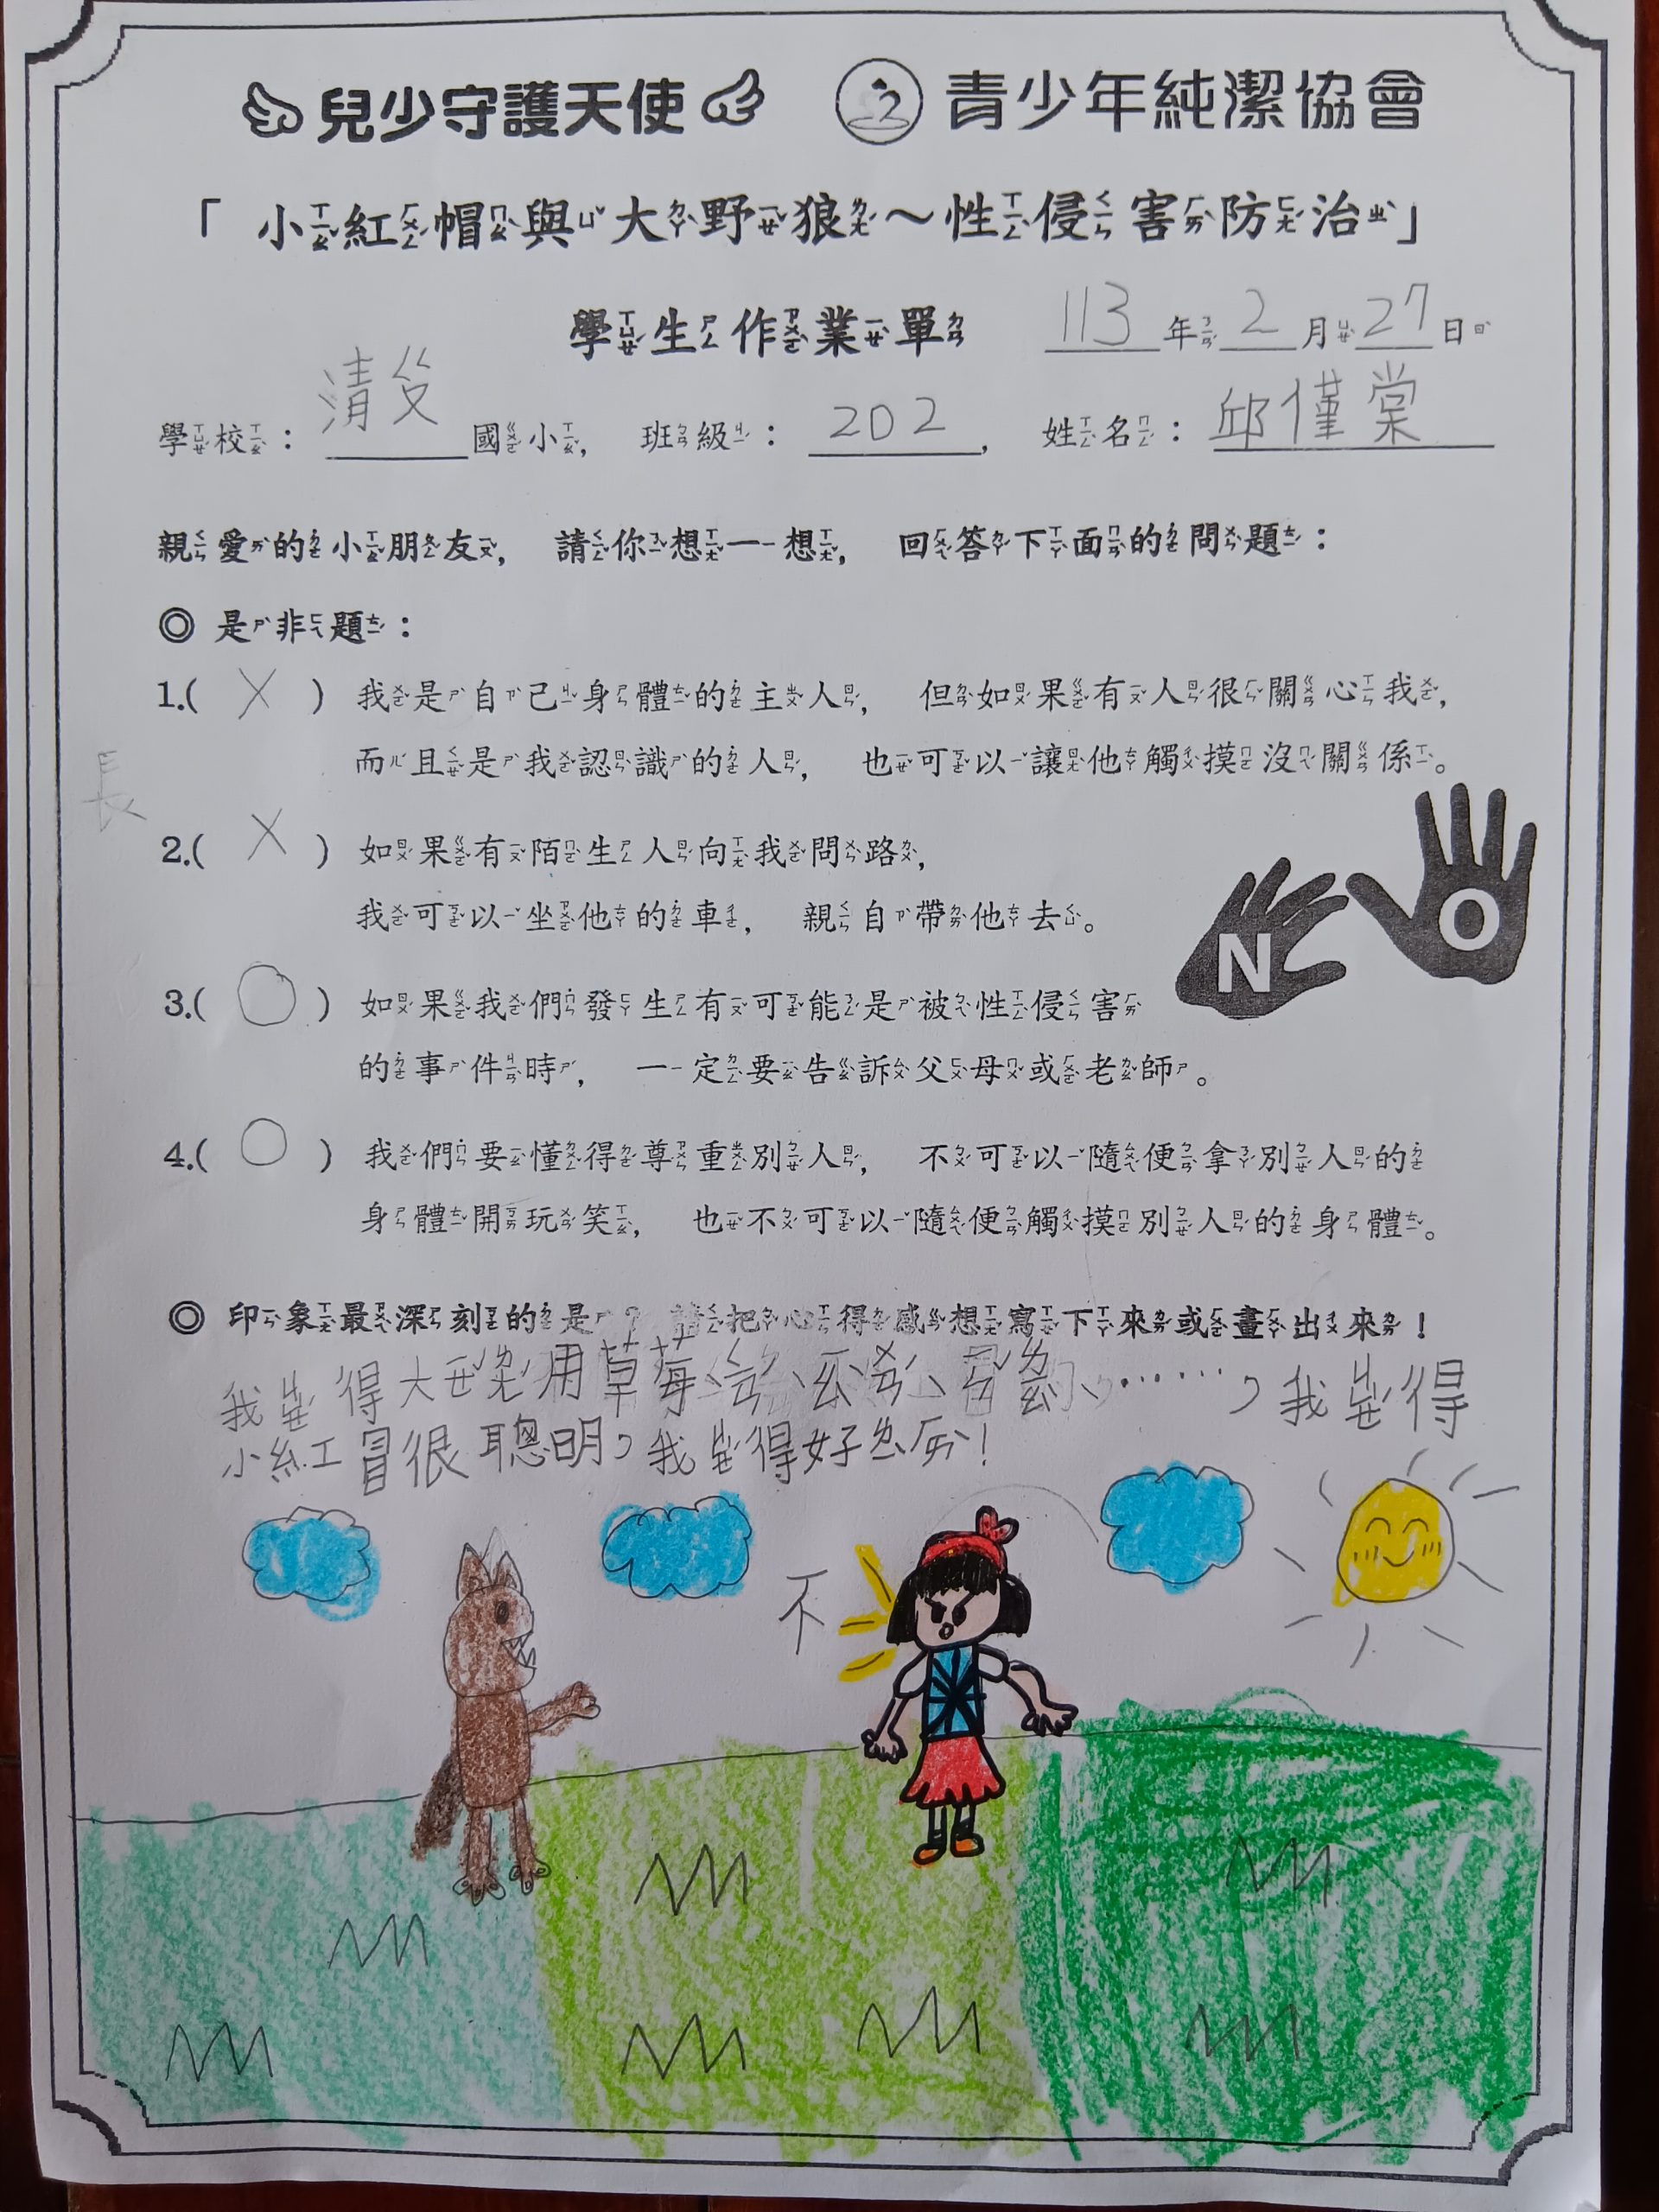 兒少守護天使 青少年純潔協會
「小紅帽與大野狼～性侵害防治」
學生作業單 113年2月27日
學校：清ㄆㄨ國小， 班級：202， 姓名：邱僅棠
親愛的小朋友， 請你想一想， 回答下面的問題：
◎ 是非題：
1.( X ) 我是自己身體的主人， 但如果有人很關心我，
而且是我認識的人， 也可以讓他觸摸沒關係。
長
2.( X ) 如果有陌生人向我問路，
我可以坐他的車， 親自帶他去。
N O
3.( ○ ) 如果我們發生有可能是被性侵害
的事件時， 一定要告訴父母或老師。
4.( ○ ) 我們要懂得尊重別人， 不可以隨便拿別人的
身體開玩笑， 也不可以隨便觸摸別人的身體。
◎ 印象最深刻的是？請把心得感想寫下來或畫出來！
我ㄐㄩㄝˊ得大ㄧㄝˇㄌㄤˊ用草莓、⋯⋯，我ㄐㄩㄝˊ得
小紅冒很聰明，我ㄐㄩㄝˊ得好ㄌㄧˋㄏㄞˋ！
不